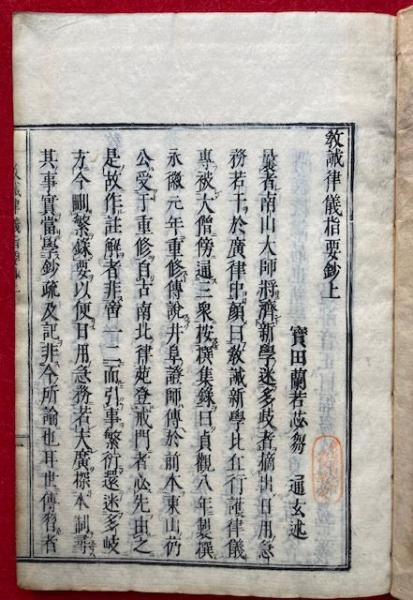 教誡律儀指要鈔上
寶田蘭若苾芻 通玄述
曩者南山大師將濟新學迷多歧者摘出日用急
務若干於廣律中顏曰教誡新學比丘行護律儀
專被大僧傍通三衆按撰集錄曰貞觀八年製撰
永徽元年重修傳說井阜證師傳於前本東山芿
公受于重修自古南北律苑登戒門者必先由之
是故作註解者非啻一二而引事繁衍還迷多岐
方今刪繁錄要以便日用急務若夫廣標本制尋
其事實當學鈔疏及記非今所論也耳世傳習者